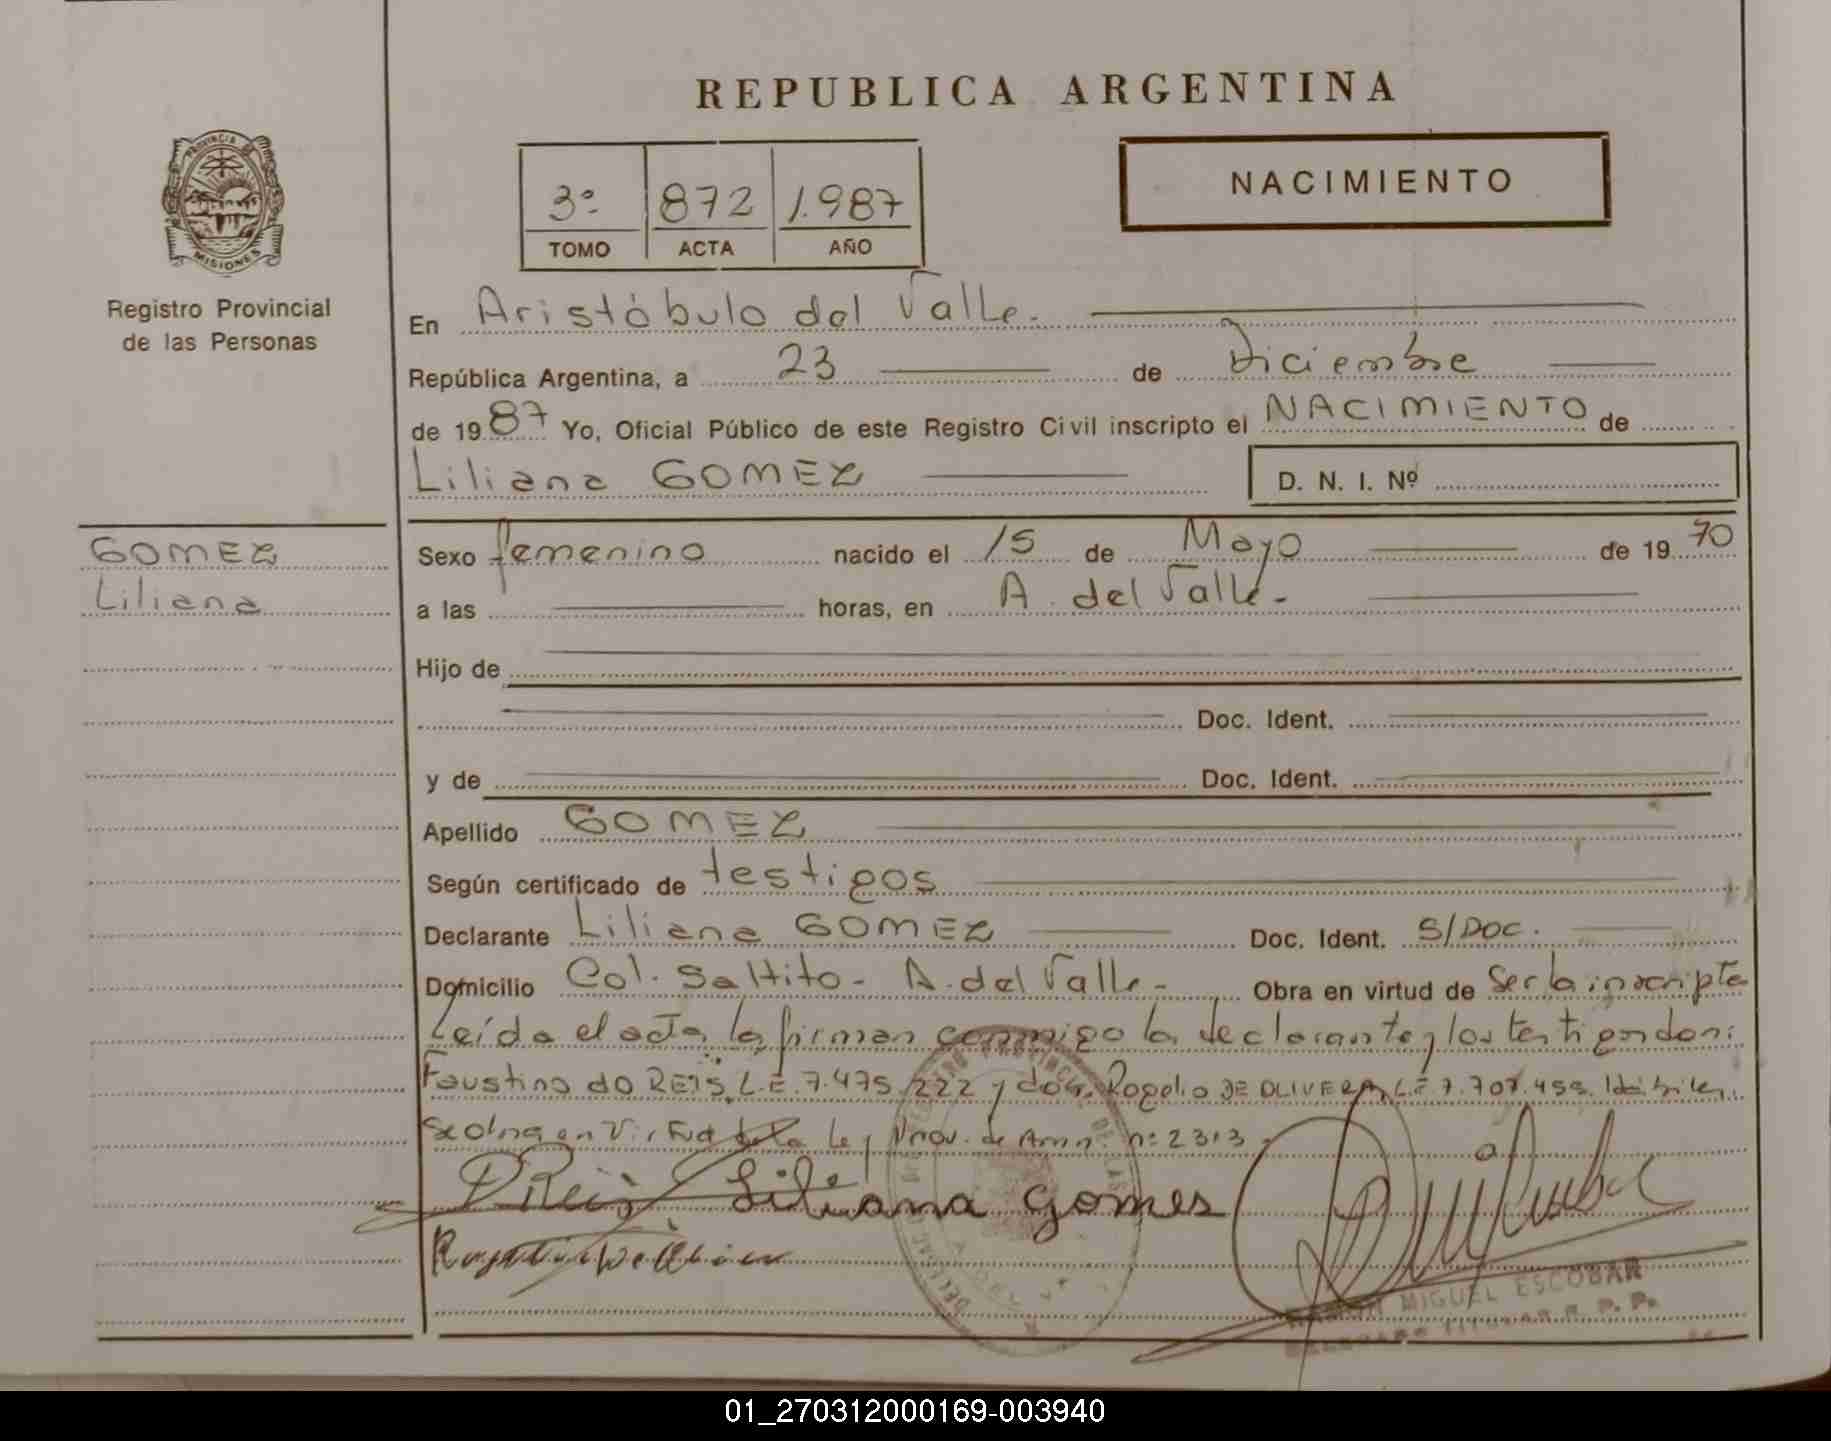 REPUBLICA ARGENTINA
PROVINCIA
MISIONES
Registro Provincial
de las Personas
3º 872 1.987
TOMO ACTA AÑO
NACIMIENTO
En Aristóbulo del Valle.
República Argentina, a 23 de Diciembre
de 1987 Yo, Oficial Público de este Registro Civil inscripto el NACIMIENTO de
Liliana GOMEZ D. N. I. Nº
GOMEZ
Liliana
Sexo femenino nacido el 15 de Mayo de 1970
a las horas, en A. del Valle.
Hijo de
Doc. Ident.
y de Doc. Ident.
Apellido GOMEZ
Según certificado de testigos
Declarante Liliana GOMEZ Doc. Ident. S/DOC.
Domicilio Col. Saltito - A. del Valle - Obra en virtud de Ser la inscripta
Leída el acta, la firman conmigo la declarante y los testigos don:
Faustino do REIS, L.E. 7.475.222 y don Rogelio DE OLIVERA L.E. 7.707.459.
Se obra en Virtud de la Ley Prov. de Amn. nº 2313
Liliana Gomes
RAMON MIGUEL ESCOBAR
DELEGADO TITULAR R. P. P.
01_270312000169-003940